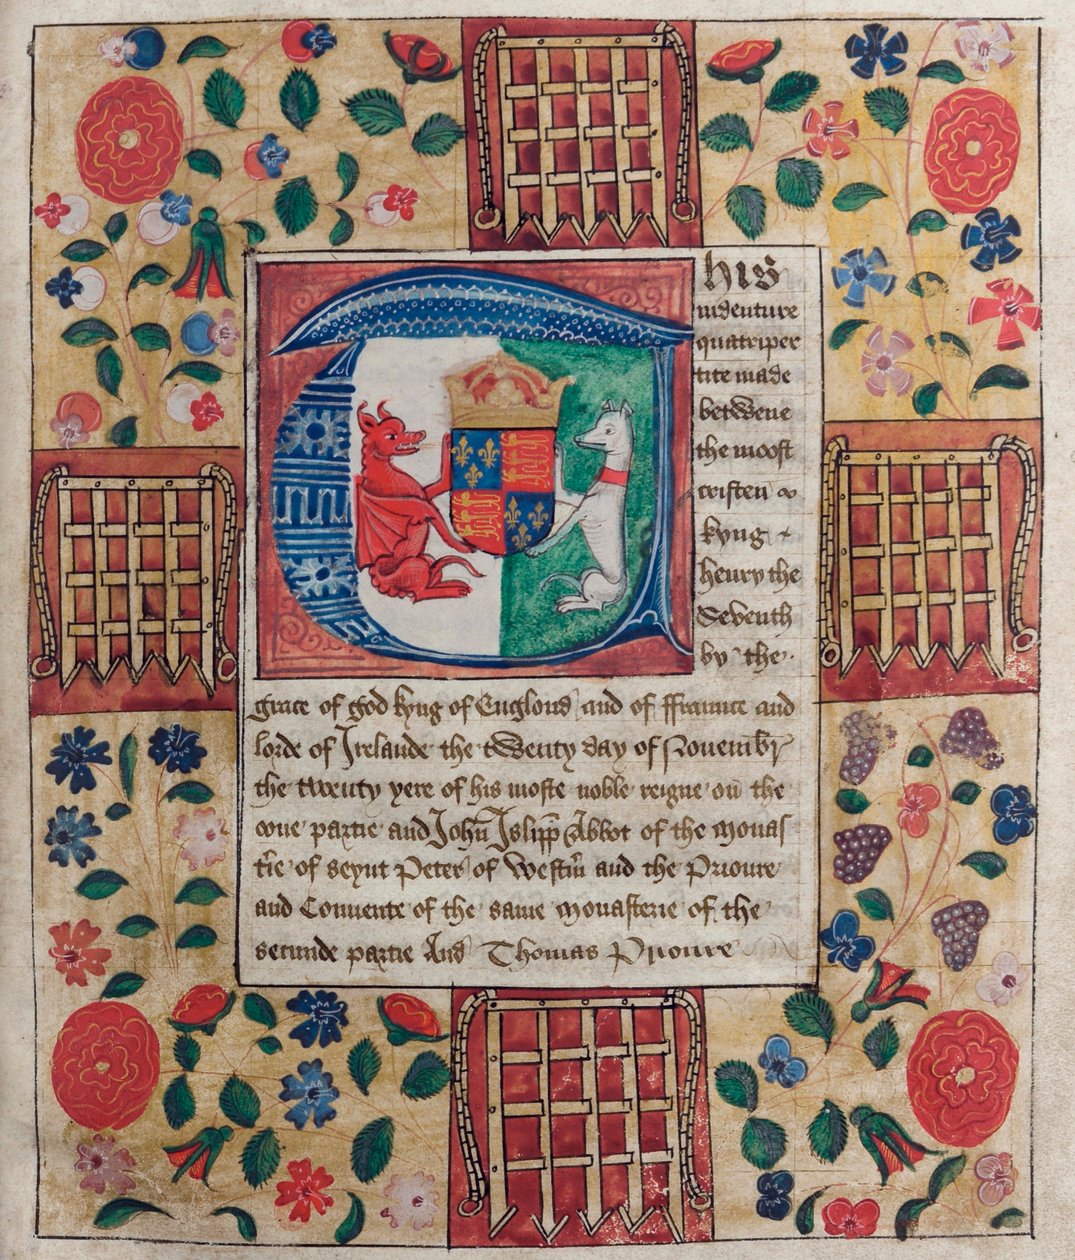 This
indenture
quatriper
tite made
betwene
the moost
cristen
kyng
henry the
seventh
by the
grace of god kyng of Englond and of ffraunce and
lorde of Irelande the twenty day of Novembr
the twenty yere of his moste noble reigne on the
oone partie and John Islipp Abbot of the monas
tre of seynt Peter of Westm and the Prioure
and Convente of the same monasterie of the
secunde partie And Thomas Prioure